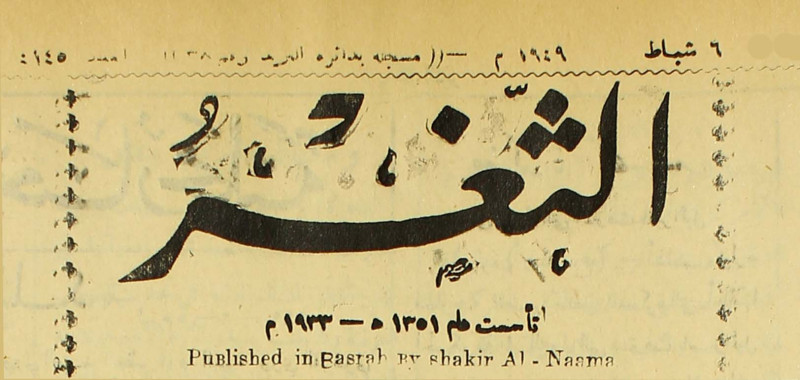 ٦ شباط ١٩٤٩ م —(( مسجله بدائره البريد
الثغر
تأسست عام ١٣٥١ ه — ١٩٣٣ م
Published in Basrah By shakir Al - Naama